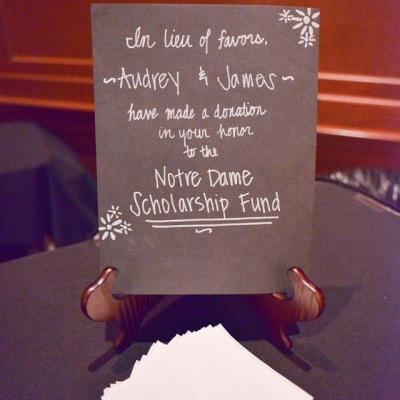 In lieu of favors,
~Audrey & James~
have made a donation
in your honor
to the
Notre Dame
Scholarship Fund